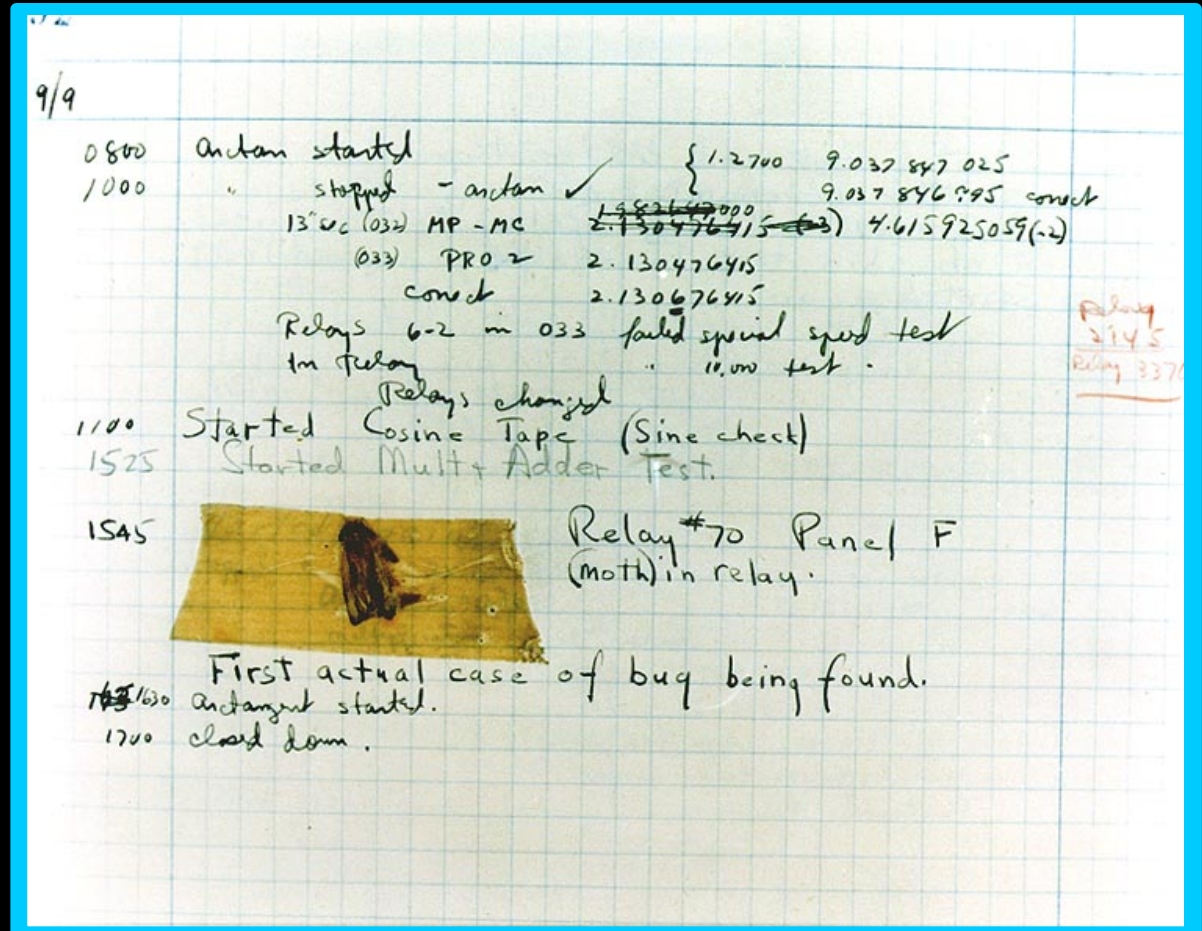 9/9
0800 arctan started { 1.2700 9.037 847 025
1000 " stopped - arctan ✓ 9.037 846 795 correct
13"sec (032) MP - MC 2.130476415 (-3) 4.615925059(-2)
(033) PRO 2 2.130476415
correct 2.130676415
Relays 6-2 in 033 failed special speed test
In Relay " 10,000 test .
Relay
2145
Relay 3370
Relays changed
1100 Started Cosine Tape (Sine check)
1525 Started Mult + Adder Test.
1545 Relay #70 Panel F
(moth) in relay.
First actual case of bug being found.
1630 arctangent started.
1700 closed down .